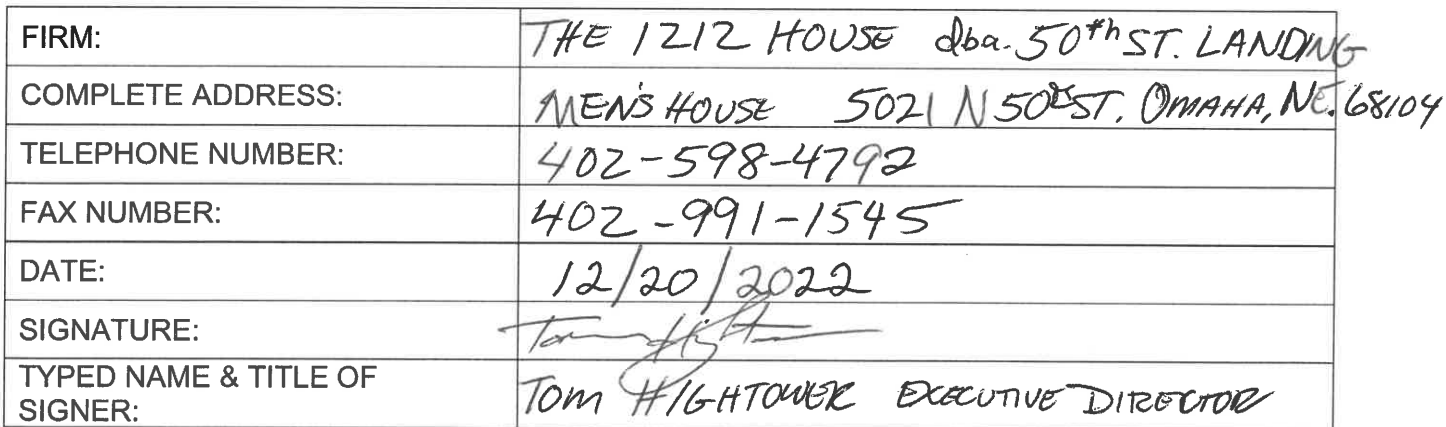 FIRM: THE 1212 HOUSE dba. 50th ST. LANDING
COMPLETE ADDRESS: MEN'S HOUSE 5021 N 50th ST. OMAHA, NE. 68104
TELEPHONE NUMBER: 402-598-4792
FAX NUMBER: 402-991-1545
DATE: 12/20/2022
SIGNATURE: Tom Hightower
TYPED NAME & TITLE OF
SIGNER: TOM HIGHTOWER EXECUTIVE DIRECTOR